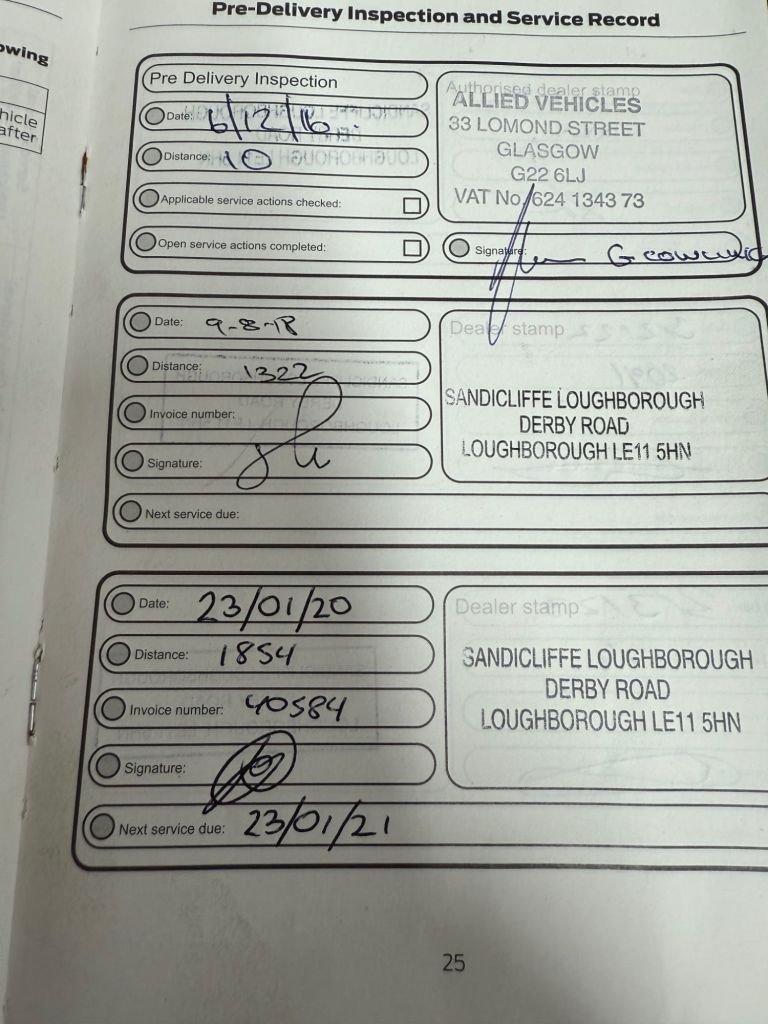 owing
hicle
after
Pre-Delivery Inspection and Service Record
Pre Delivery Inspection
Date: 6/12/16
Distance: 10
Applicable service actions checked:
Open service actions completed:
Authorised dealer stamp
ALLIED VEHICLES
33 LOMOND STREET
GLASGOW
G22 6LJ
VAT No. 624 1343 73
Signature:
Date: 9-8-18
Distance: 1322
Invoice number:
Signature:
Next service due:
Dealer stamp
SANDICLIFFE LOUGHBOROUGH
DERBY ROAD
LOUGHBOROUGH LE11 5HN
Date: 23/01/20
Distance: 1854
Invoice number: 40584
Signature:
Next service due: 23/01/21
Dealer stamp
SANDICLIFFE LOUGHBOROUGH
DERBY ROAD
LOUGHBOROUGH LE11 5HN
25